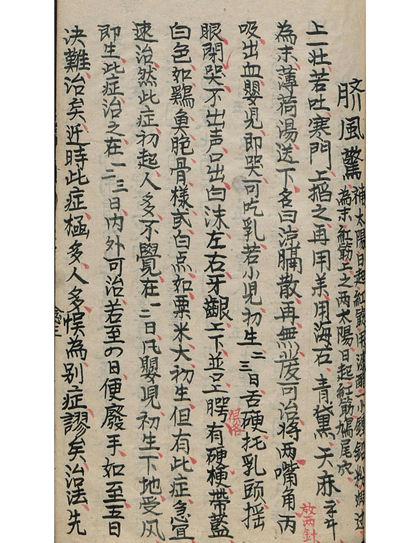 脐風驚
補太陽日起紅筋用
為末紅筋上之两太陽日起紅筋鳩尾穴
上一壮若吐寒門上搯之再用用海石 青黛 天麻
為末薄荷湯送下名曰膈散再無可治将两嘴角丙
放两針
吸出血嬰児即哭可吃乳若小児初生二三日舌硬托乳頭揺
眼閉哭不出声口出白沫左右牙齦上下並腭有硬梗帯藍
白色如鷄魚胞骨樣或白点如粟米大初生但有此症宜
速治然此症初起人多不覺在一二日凡嬰児初生下地受风
即生此症治之在一二三日内外可治若至四日便廢手如至五日
决難治矣近時此症極多人多悮為别症謬矣治法先